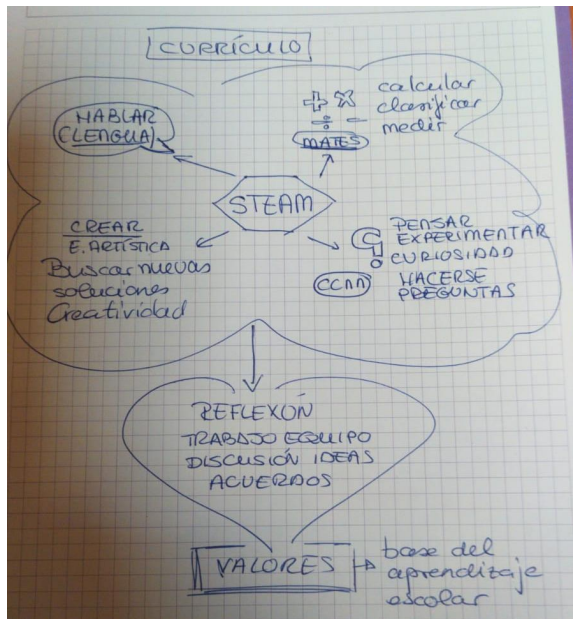 CURRÍCULO
HABLAR
(LENGUA)
+ ×
÷ -
MATES
calcular
clasificar
medir
STEAM
CREAR
E. ARTÍSTICA
Buscar nuevas
soluciones
Creatividad
?
CCNN
PENSAR
EXPERIMENTAR
CURIOSIDAD
HACERSE
PREGUNTAS
REFLEXÓN
TRABAJO EQUIPO
DISCUSIÓN IDEAS
ACUERDOS
VALORES
base del
aprendizaje
escolar